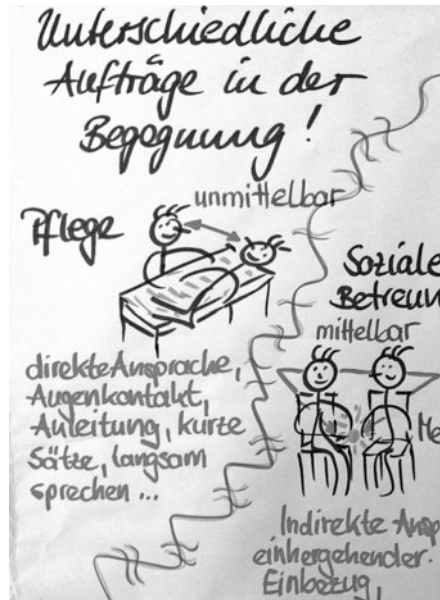 Unterschiedliche
Aufträge in der
Begegnung!
unmittelbar
Pflege
direkte Ansprache,
Augenkontakt,
Anleitung, kurze
Sätze, langsam
sprechen ...
Soziale
Betreu
mittelbar
Me
Indirekte Ansp
einhergehender
Einbezug,